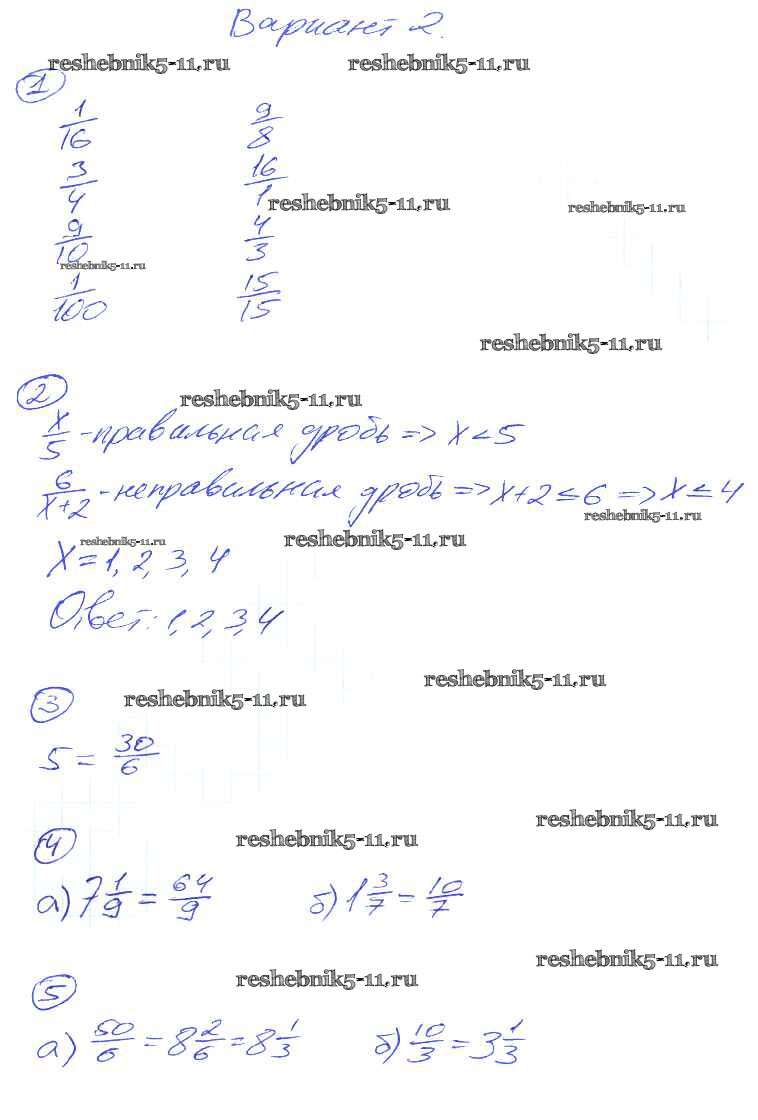 Вариант 2.
reshebnik5-11.ru reshebnik5-11.ru
1
1/16 9/8
3/4 16/1
reshebnik5-11.ru reshebnik5-11.ru
9/10 4/3
reshebnik5-11.ru
1/100 15/15
reshebnik5-11.ru
2
reshebnik5-11.ru
x/5 - правильная дробь => x < 5
6/x+2 - неправильная дробь => x+2 ≤ 6 => x ≤ 4
reshebnik5-11.ru
reshebnik5-11.ru reshebnik5-11.ru
x = 1, 2, 3, 4
Ответ: 1, 2, 3, 4
reshebnik5-11.ru
3
reshebnik5-11.ru
5 = 30/6
reshebnik5-11.ru
4
reshebnik5-11.ru
а) 7 1/9 = 64/9 б) 1 3/7 = 10/7
reshebnik5-11.ru
5
reshebnik5-11.ru
а) 50/6 = 8 2/6 = 8 1/3 б) 10/3 = 3 1/3